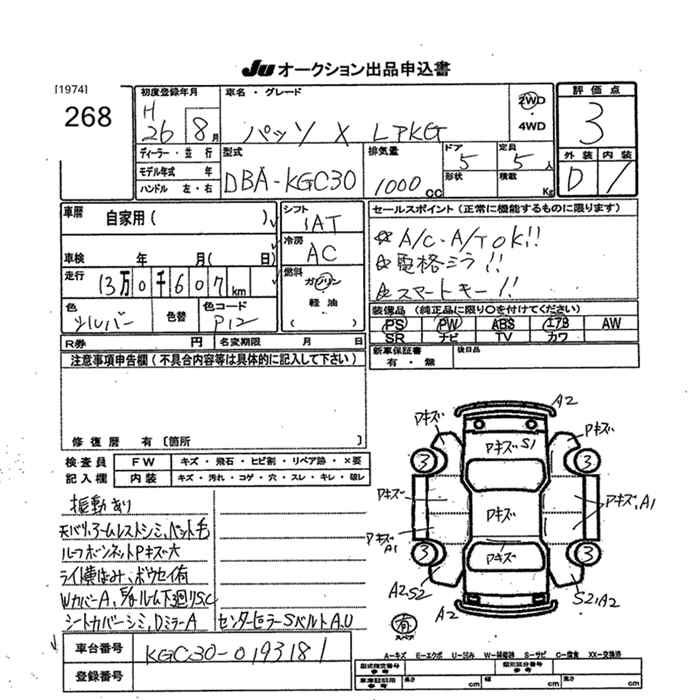 Ju オークション出品申込書
[1974]
268
初度登録年月
H
26 8月
車名・グレード
パッソ X LPKG
2WD
4WD
評価点
3
外装 内装
D 1
ディーラー・並行
モデル年式 年
ハンドル 左・右
型式
DBA-KGC30
排気量
1000cc
ドア
5
形状
定員
5人
積載
Kg
車歴 自家用( )
車検 年 月( 日)
走行 13万0千607km
色 シルバー 色替 色コード P12
シフト
IAT
冷房
AC
燃料
ガソリン
軽油
( )
セールスポイント(正常に機能するものに限ります)
☆A/C・A/T OK!!
☆電格ミラ!!
☆スマートキー!!
装備品(純正品に限り〇を付けてください)
PS PW ABS エアB AW
SR ナビ TV カワ
R券 円 名変期限 月 日
新車保証書
有・無
後日品
注意事項申告欄(不具合内容等は具体的に記入して下さい)
修復歴 有〔箇所 〕
検査員 FW キズ・飛石・ヒビ割・リペア跡・×要
記入欄 内装 キズ・汚れ・コゲ・穴・スレ・キレ・破レ
振動あり
天バリ,アームレストシミ,ペット毛
ルーフボンネットPキズ大
ライト横はみ,ボウセイ有
WカバーA, ルーム下廻りS,C
シートカバーシミ,DミラーA
センターピラーSベルトA,U
A2
Pキズ Pキズ
Pキズ S1
3 3
Pキズ Pキズ Pキズ,A1
Pキズ A1
Pキズ
3 3
A2S2 S2,A2
A2
有
スペア
A－キズ E－エクボ U－凹み W－補修跡 S－サビ C－腐食 XX－交換済
車台番号 KGC30-0193181
登録番号
型式指定番号
参考
類別区分番号
参考
車庫証明用
参考
長さ cm 幅 cm 高さ cm